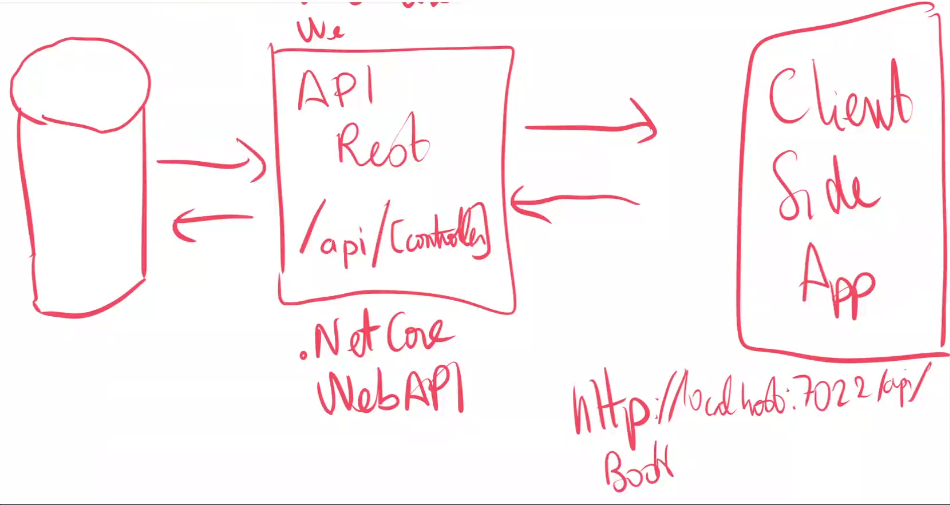 We
API
Rest
/api/[controller]
.NetCore
WebAPI
Client
Side
App
http://localhost:7022/api/